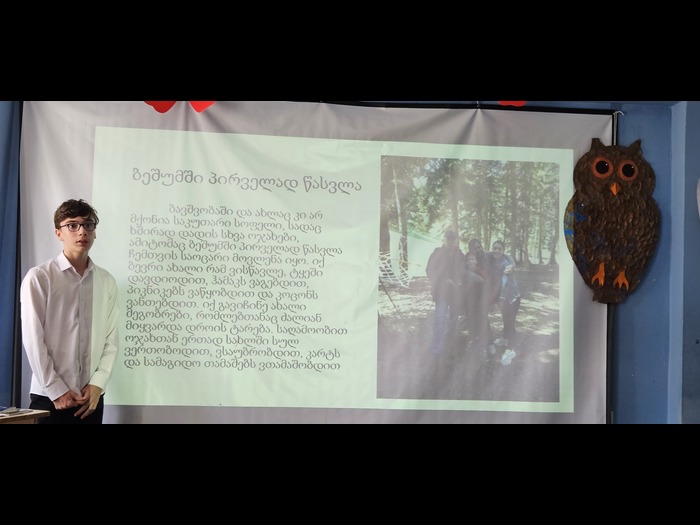 ბეშუმში პირველად წასვლა
ბავშვობაში და ახლაც კი არ
მქონია საკუთარი სოფელი, სადაც
ხშირად დადის სხვა ოჯახები,
ამიტომაც ბეშუმში პირველად წასვლა
ჩემთვის საოცარი მოვლენა იყო. იქ
ბევრი ახალი რამ ვისწავლე, ტყეში
დავდიოდით, ჰამაკს ვაგებდით,
პიკნიკებს ვაწყობდით და კოცონს
ვანთებდით. იქ გავიჩინე ახალი
მეგობრები, რომლებთანაც ძალიან
მიყვარდა დროის ტარება. საღამოობით
ოჯახთან ერთად სახლში სულ
ვერთობოდით, ვსაუბრობდით, კარტს
და სამაგიდო თამაშებს ვთამაშობდით